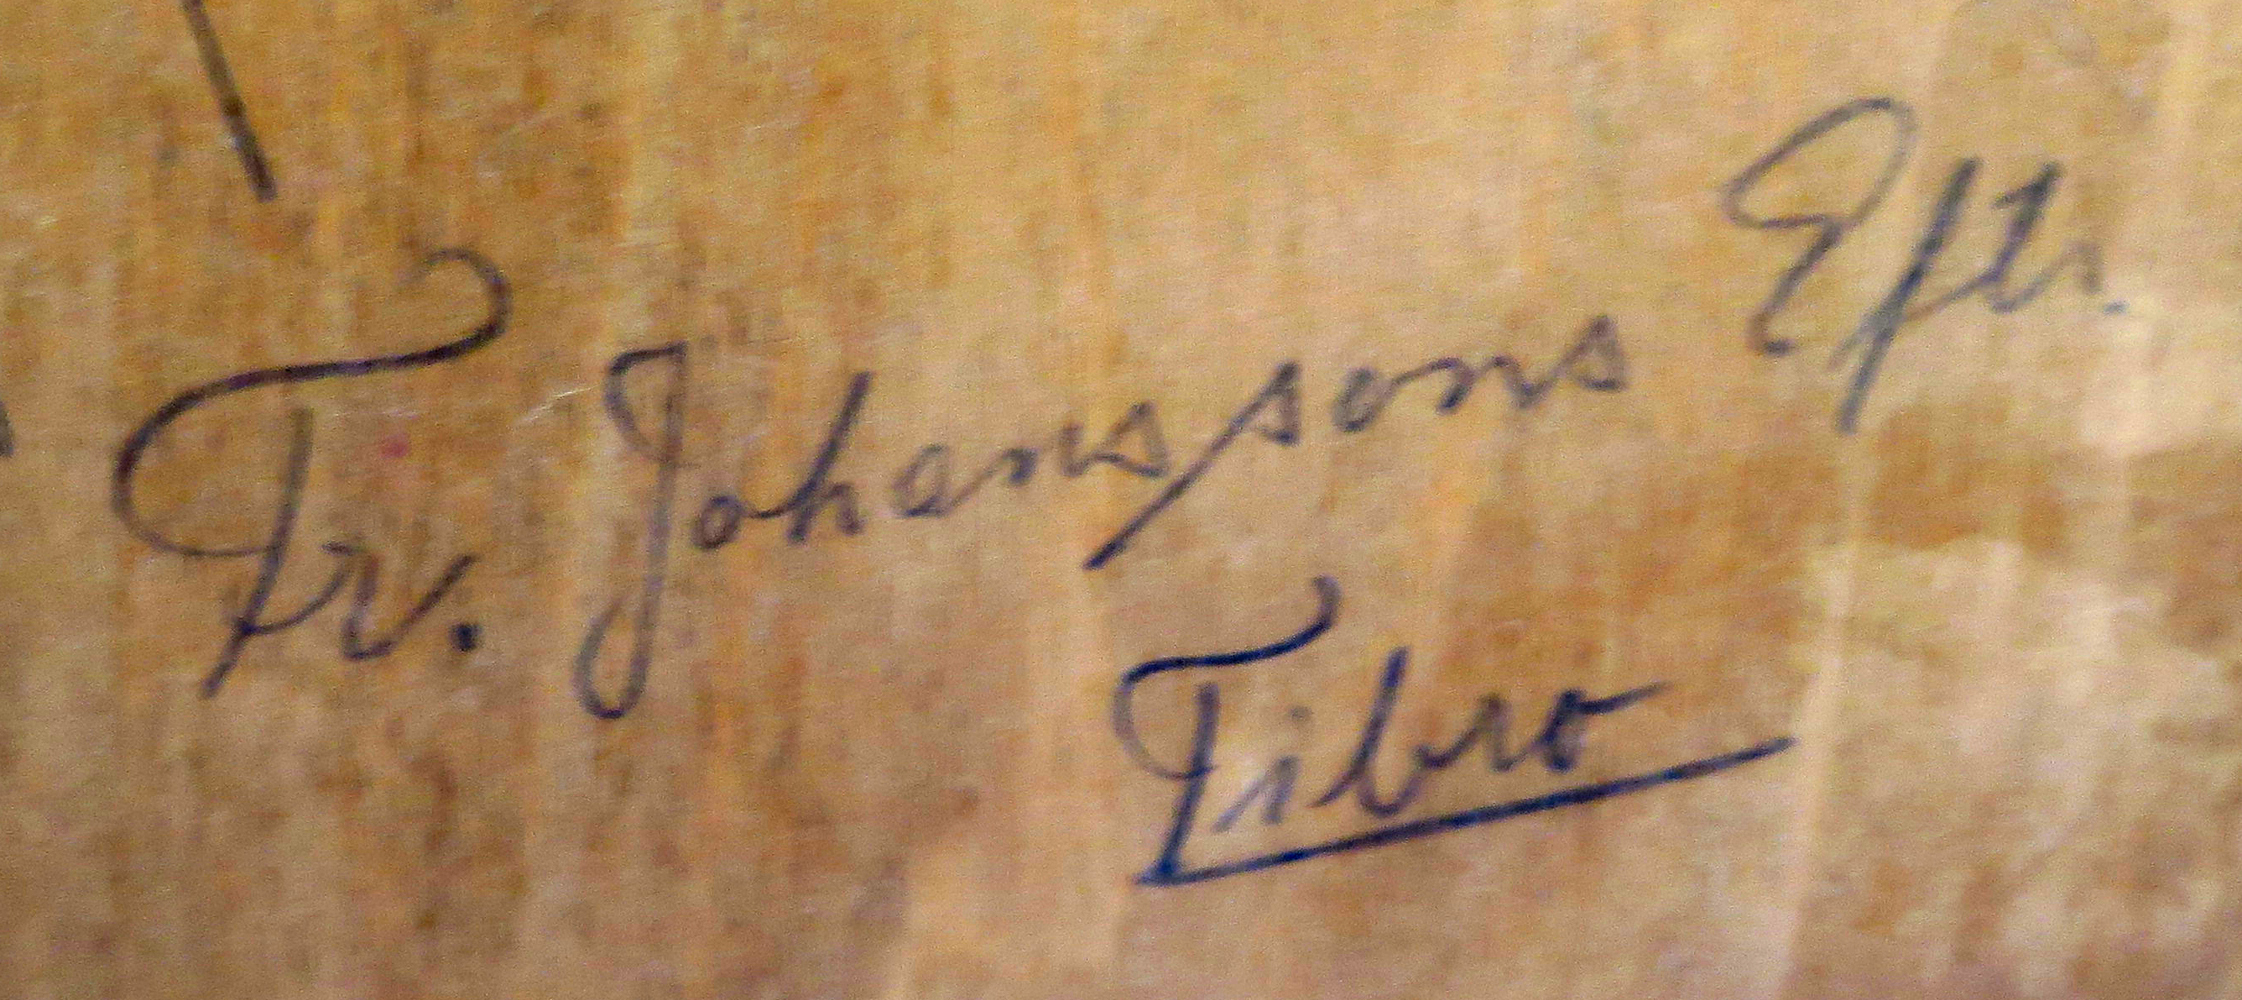 Fr. Johanssons Eftr.
Tibro